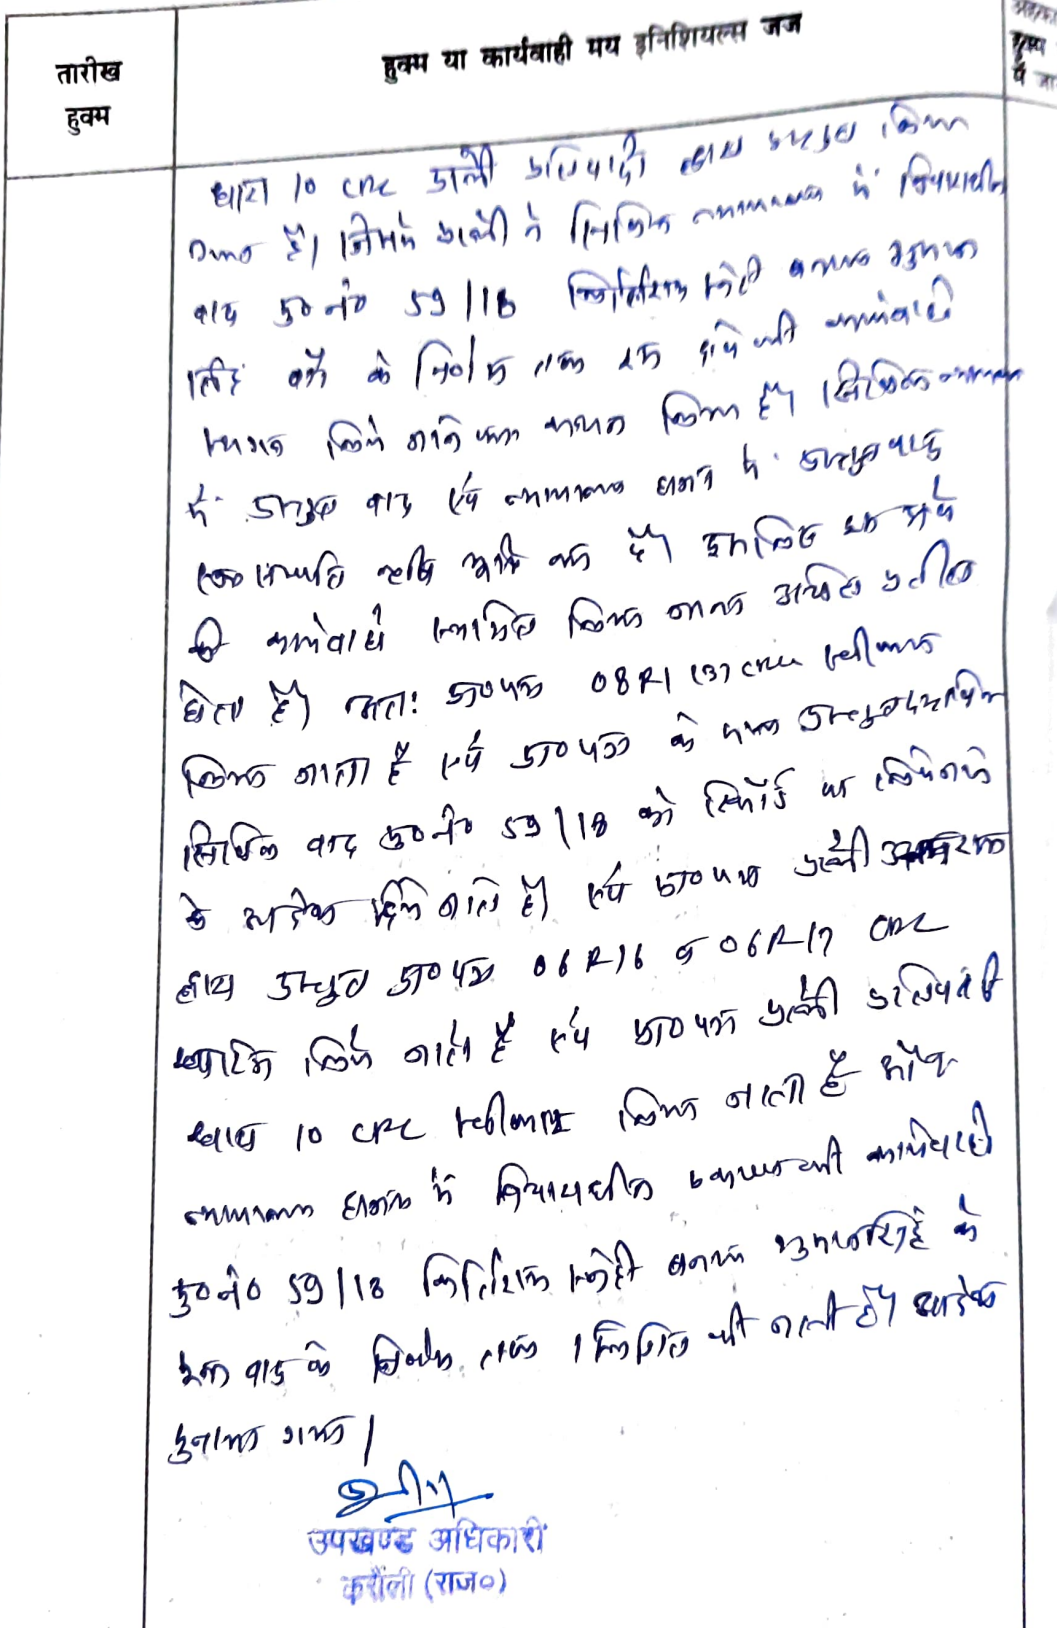 तारीख
हुक्म
हुक्म या कार्यवाही मय इनिशियल्स जज
हुक्म
धारा 10 CPC प्रार्थी प्रतिवादी द्वारा प्रस्तुत किया
गया है। जिसमें प्रार्थी ने सिविल न्यायालय में विचाराधीन
वाद मु0 नं0 59/18 बनाम
सिंह वगै के निर्णय तक इस दावे की कार्यवाही
स्थगित किये जाने का कथन किया है। सिविल न्यायालय
में प्रस्तुत वाद एवं न्यायालय हाजा में प्रस्तुत वाद
एक सम्पत्ति कृषि भूमि का है। इसलिए
की कार्यवाही स्थगित किया जाना उचित प्रतीत
होता है। अतः प्रा0 पत्र 08R1(3) CPC स्वीकार
किया जाता है एवं प्रा0 पत्र के साथ प्रस्तुत
सिविल वाद मु0 नं0 59/18 को रिकॉर्ड पर लिये जाने
के आदेश दिये जाते है। एवं प्रा0 पत्र प्रार्थी
द्वारा प्रस्तुत प्रा0 पत्र 06R16 व 06R17 CPC
खारिज किये जाते है एवं प्रा0 पत्र प्रार्थी प्रतिवादी
धारा 10 CPC स्वीकार किया जाता है
न्यायालय हाजा में विचाराधीन प्रकरण की कार्यवाही
मु0 नं0 59/18 बनाम के
इस वाद के निर्णय तक स्थगित की जाती है। आदेश
सुनाया गया।
उपखण्ड अधिकारी
करौली (राज०)